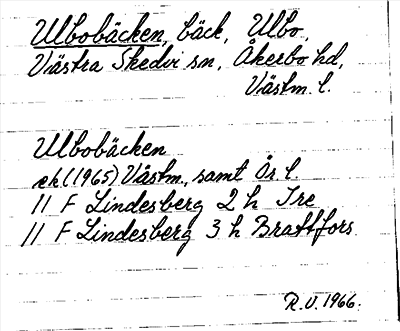 Ulbobäcken, bäck, Ulbo,
Västra Skedvi sn, Åkerbo hd,
Västm. l.
Ulbobäcken
ek (1965) Västm., samt Ör l.
11 F Lindesberg 2 h Tre
11 F Lindesberg 3 h Brattfors
R.V. 1966.